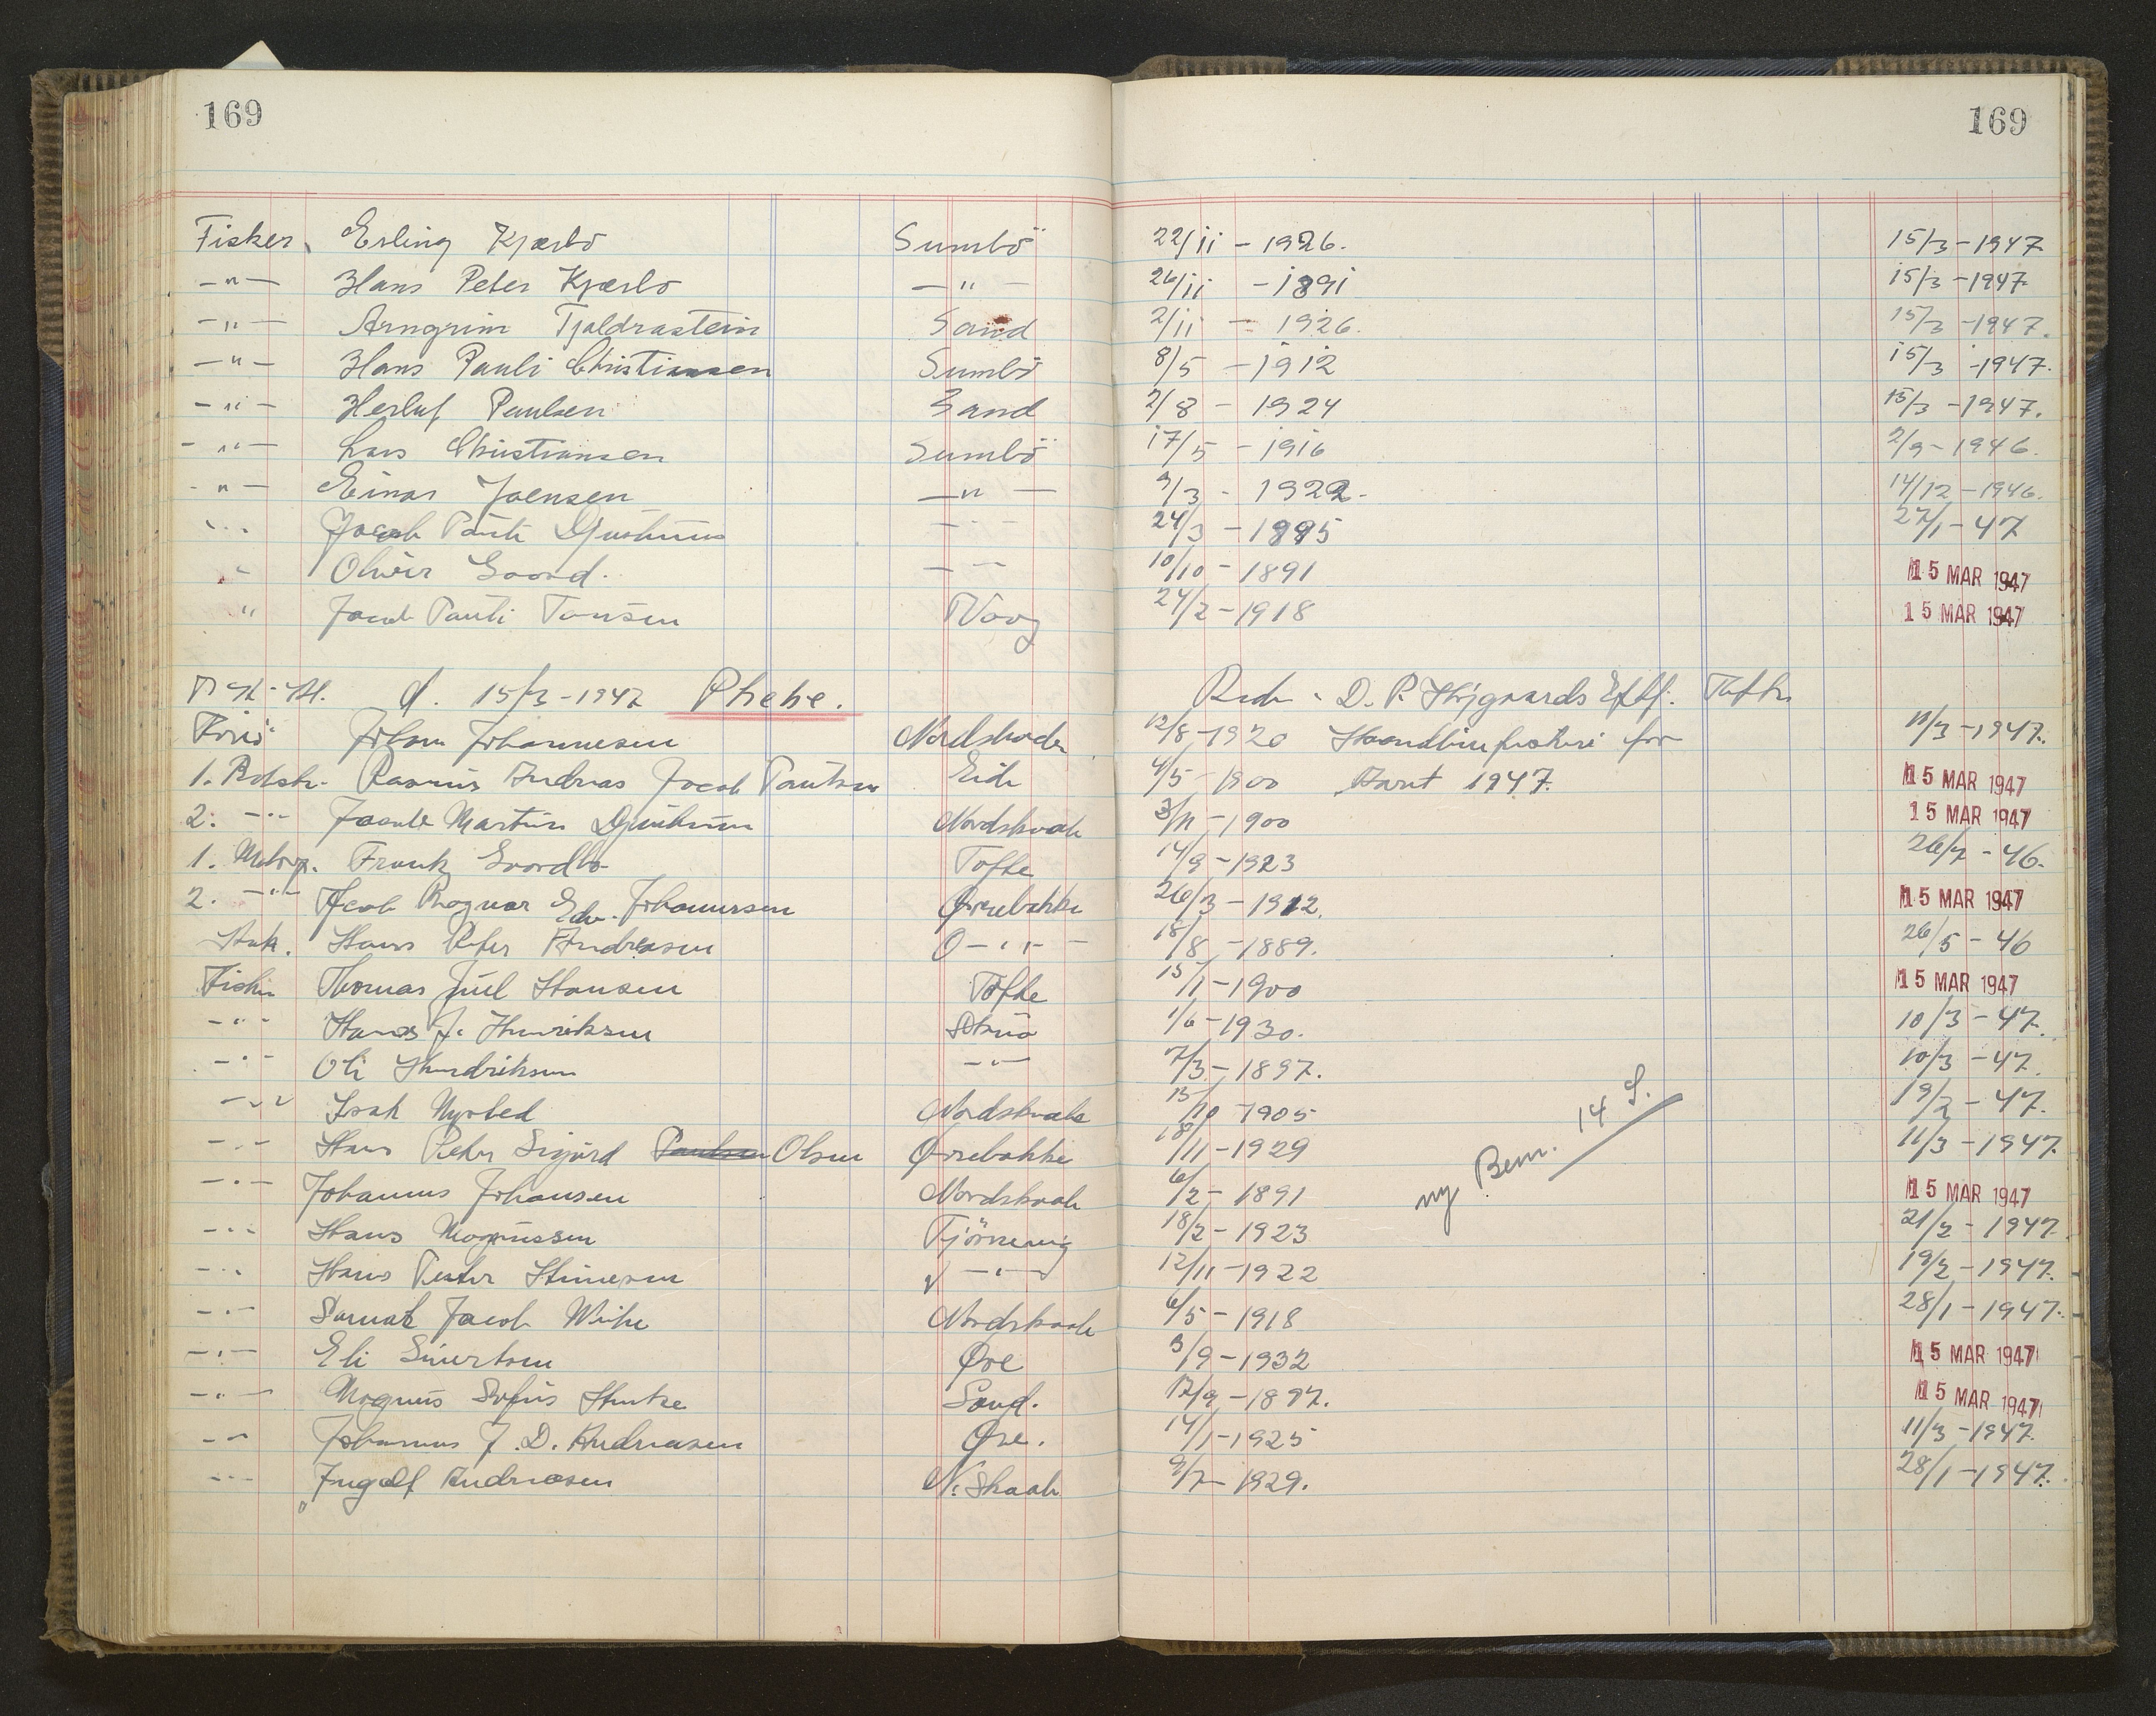 169 169
Fisker Erling Kjærbo Sumbö 22/11 - 1926. 15/3 - 1947
-"- Hans Peter Kjærbo -"- 26/11 - 1891 15/3 - 1947
-"- Arngrim Tjaldrastein Sand 2/11 - 1926. 15/3 - 1947.
-"- Hans Pauli Christiansen Sumbö 8/5 - 1912 15/3 - 1947.
-"- Herluf Paulsen Sand 2/8 - 1924 15/3 - 1947.
-"- Lars Christiansen Sumbö 17/5 - 1916 2/9 - 1946.
-"- Einar Joensen -"- 9/3 - 1922. 14/12 - 1946.
-"- Jacob Pauli -"- 24/3 - 27/1 - 47
" Oliver -"- 10/10 - 1891 15 MAR 1947
" Jacob Pauli Vaag 24/2 - 1918 15 MAR 1947
d. 15/3 - 1947 Phebe. D. P. Højgaards Eftf. Tofte
Johan Johannesen 12/8 - 1920 for 11/3 - 1947.
1. Bdstr. Rasmus Andreas Jacob Eide 4/5 - 1900 Aaret 1947. 15 MAR 1947
2. -"- Martin Nordskaale 3/11 - 1900 15 MAR 1947
1. Motorp. Frank Tofte 14/9 - 1923 - 46.
2. -"- Jacob Ragnar Edv. Johannesen Ørrebakke 26/3 - 1912. 15 MAR 1947
Hans Peter Andreasen -"- 18/8 - 1889. 26/5 - 46
Fisker Thomas Juel Hansen Tofte 15/1 - 1900 15 MAR 1947
-"- Hans J. Henriksen 1/6 - 1930. 10/3 - 47.
-"- Oli Hendriksen -"- 7/3 - 1897. 10/3 - 47.
-"- Isak Nysted Nordskaale 13/10 1905 19/2 - 47.
-"- Hans Peder Sigurd Paulsen Olsen Ørrebakke 18/11 - 1929 11/3 - 1947.
ny Bem. 14 S.
-"- Johannes Johansen Nordskaale 6/2 - 1891 15 MAR 1947
-"- Hans Magnussen Tjörnevig 18/2 - 1923 21/2 - 1947.
-"- Hans Peter -"- 12/11 - 1922 19/2 - 1947.
-"- Jacob Nordskaale 6/5 - 1918 28/1 - 1947.
-"- Eli Sivertsen Øre 3/9 - 1932 15 MAR 1947
-"- Magnus Sofus Sand. 17/9 - 1897. 15 MAR 1947
-"- Johannes J. D. Andreasen Øre. 14/1 - 1925 11/3 - 1947.
-"- Ingolf Andreasen N. Skaale 9/7 - 1929. 28/1 - 1947.